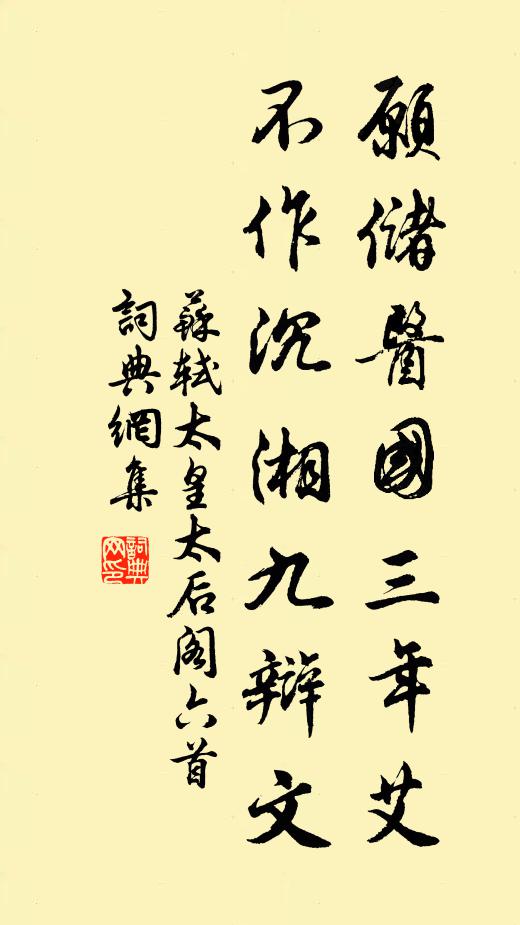 願儲醫國三年艾
不作沉湘九辯文
蘇軾太皇太后閣六首
詞典網集
詞典网印